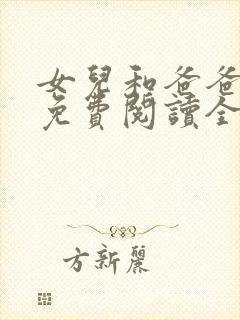 女兒和爸爸
免費閱讀全
方新麗